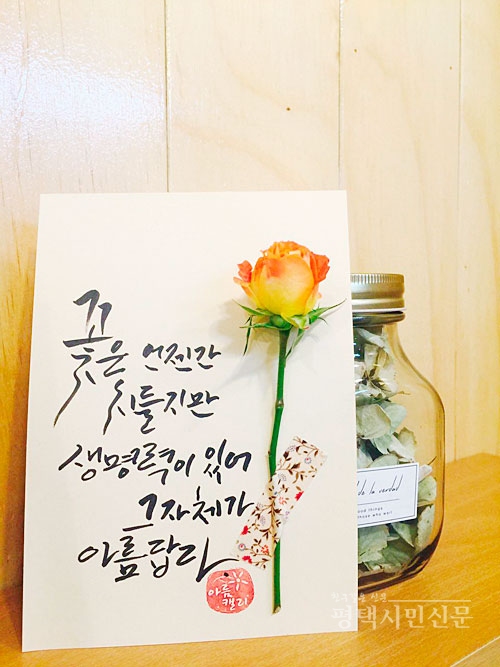 꽃은 언젠간
시들지만
생명력이 있어
그 자체가
아름답다
아름
캘리
de la verdad
평택시민신문